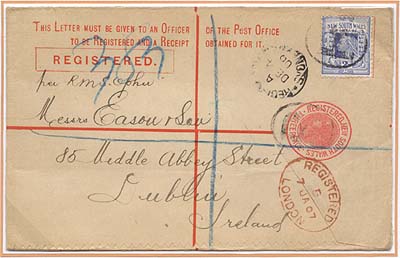 THIS LETTER MUST BE GIVEN TO AN OFFICER OF THE POST OFFICE
TO BE REGISTERED AND A RECEIPT OBTAINED FOR IT.
REGISTERED.
NEW SOUTH WALES
per R.M.S.
Messrs Eason & Son
85 Middle Abbey Street
Dublin
Ireland
REGISTERED
7 JA 07
LONDON